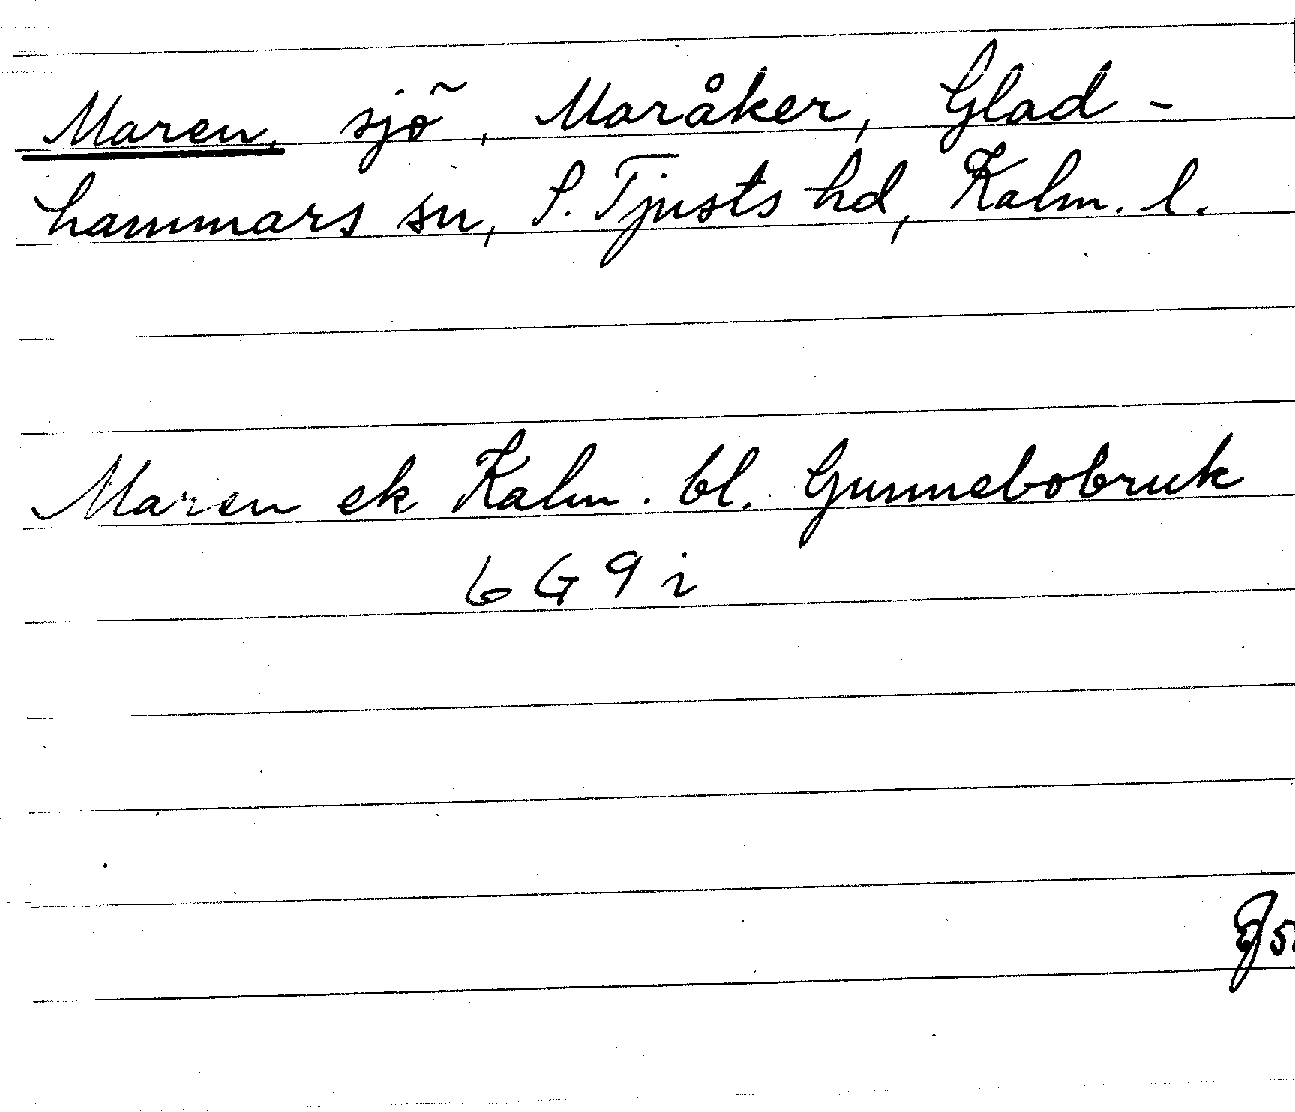 Maren, sjö, Maråker, Glad-
hammars sn, S. Tjusts hd, Kalm. l.
Maren ek Kalm. bl. Gunnebobruk
6 G 9 i